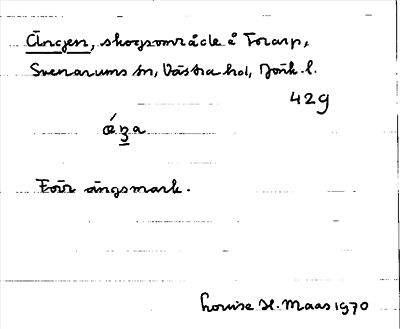 Ängen, skogsområde å Torarp,
Svenarums sn, Västra hd, Jönk. l.
429
Förr ängsmark.
Louise H. Maas 1970